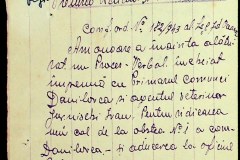 Conform Ord. Nr. 182/943 al Leg.
Am onoare a înainta alătu-
rat un Proces-Verbal încheiat
împreună cu Primarul comunei
Danilovca și agentul veterinar
Ivan. Pentru ridicarea
unui cal de la obștea Nº 1 a com.
Danilovca - și aducerea la oficiul